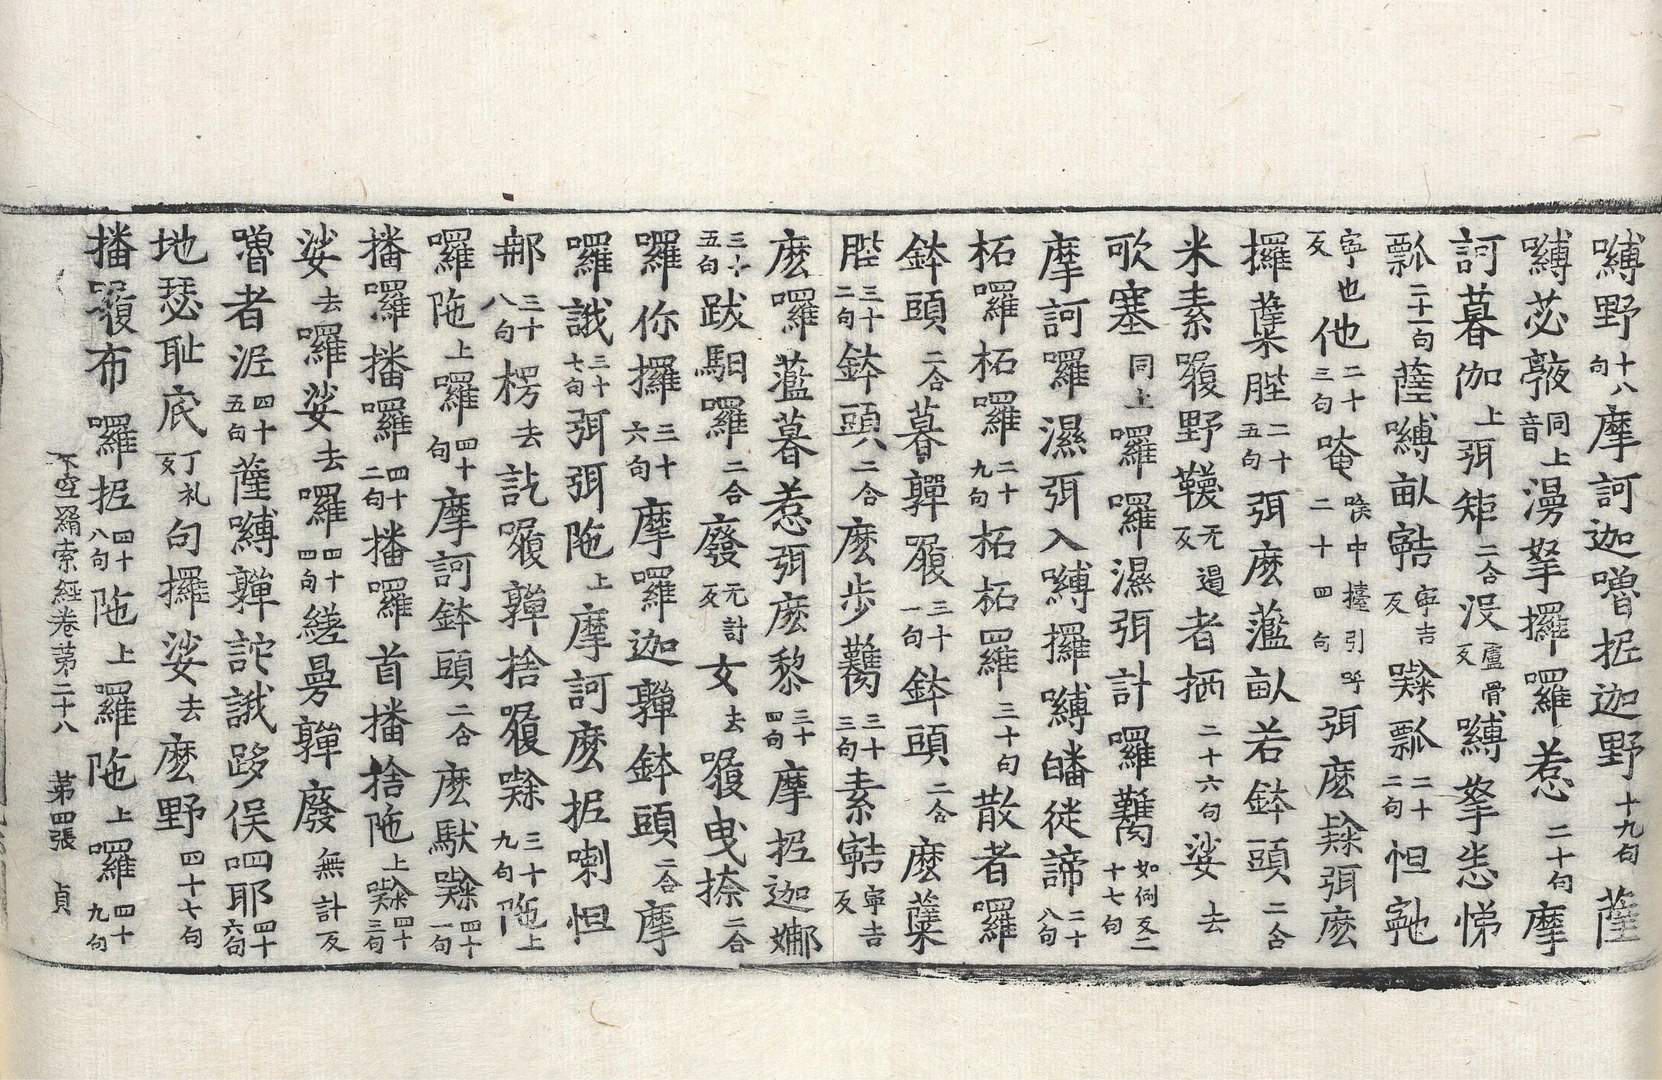 嚩野十八句摩訶迦嚕抳迦野十九句薩
嚩苾𢾺同上音漫拏攞囉惹二十句摩
訶暮伽上弭矩二合没盧骨反嚩拏恙悌
瓢二十一句薩嚩畝嚞寧吉反㘑瓢二十二句怛𭓋
寧也反他二十三句唵喉中擡引呼二十四句弭麽㘑弭麽
攞蘖䏶二十五句弭麽藍畝若鉢頭二合
米素履野韈无遏反者㧞二十六句娑去
歌塞同上囉囉濕弭計囉鸘如例反二十七句
摩訶囉濕弭入嚩攞嚩皤徙諦二十八句
柘囉柘囉二十九句柘柘羅三十句散者囉
鉢頭二合暮亸履三十一句鉢頭二合麽蘖
䏶三十二句鉢頭二合麽步鸘三十三句素嚞寧吉反
麽囉藍暮惹弭麽黎三十四句摩抳迦娜
三十五句跋馹囉二合廢无計反女去履曳捺二合
囉你攞三十六句摩囉迦亸鉢頭二合摩
囉誐三十七句弭弭陁上摩訶麽抳喇怛
那三十八句楞去訖履亸捨履㘑三十九句陁上
囉陁上囉四十句摩訶鉢頭二合麽馱㘑四十一句
播囉播囉四十二句播囉首播捨陁上㘑四十三句
娑去囉娑去囉四十四句縒曼亸廢無計反
嚕者涩四十五句薩嚩亸詑誐跢俁呬耶四十六句
地瑟耻底丁礼反句攞娑去麽野四十七句
不空羂索經卷第二十八 第四張 貞
播履布囉抳四十八句陁上囉陁上囉四十九句